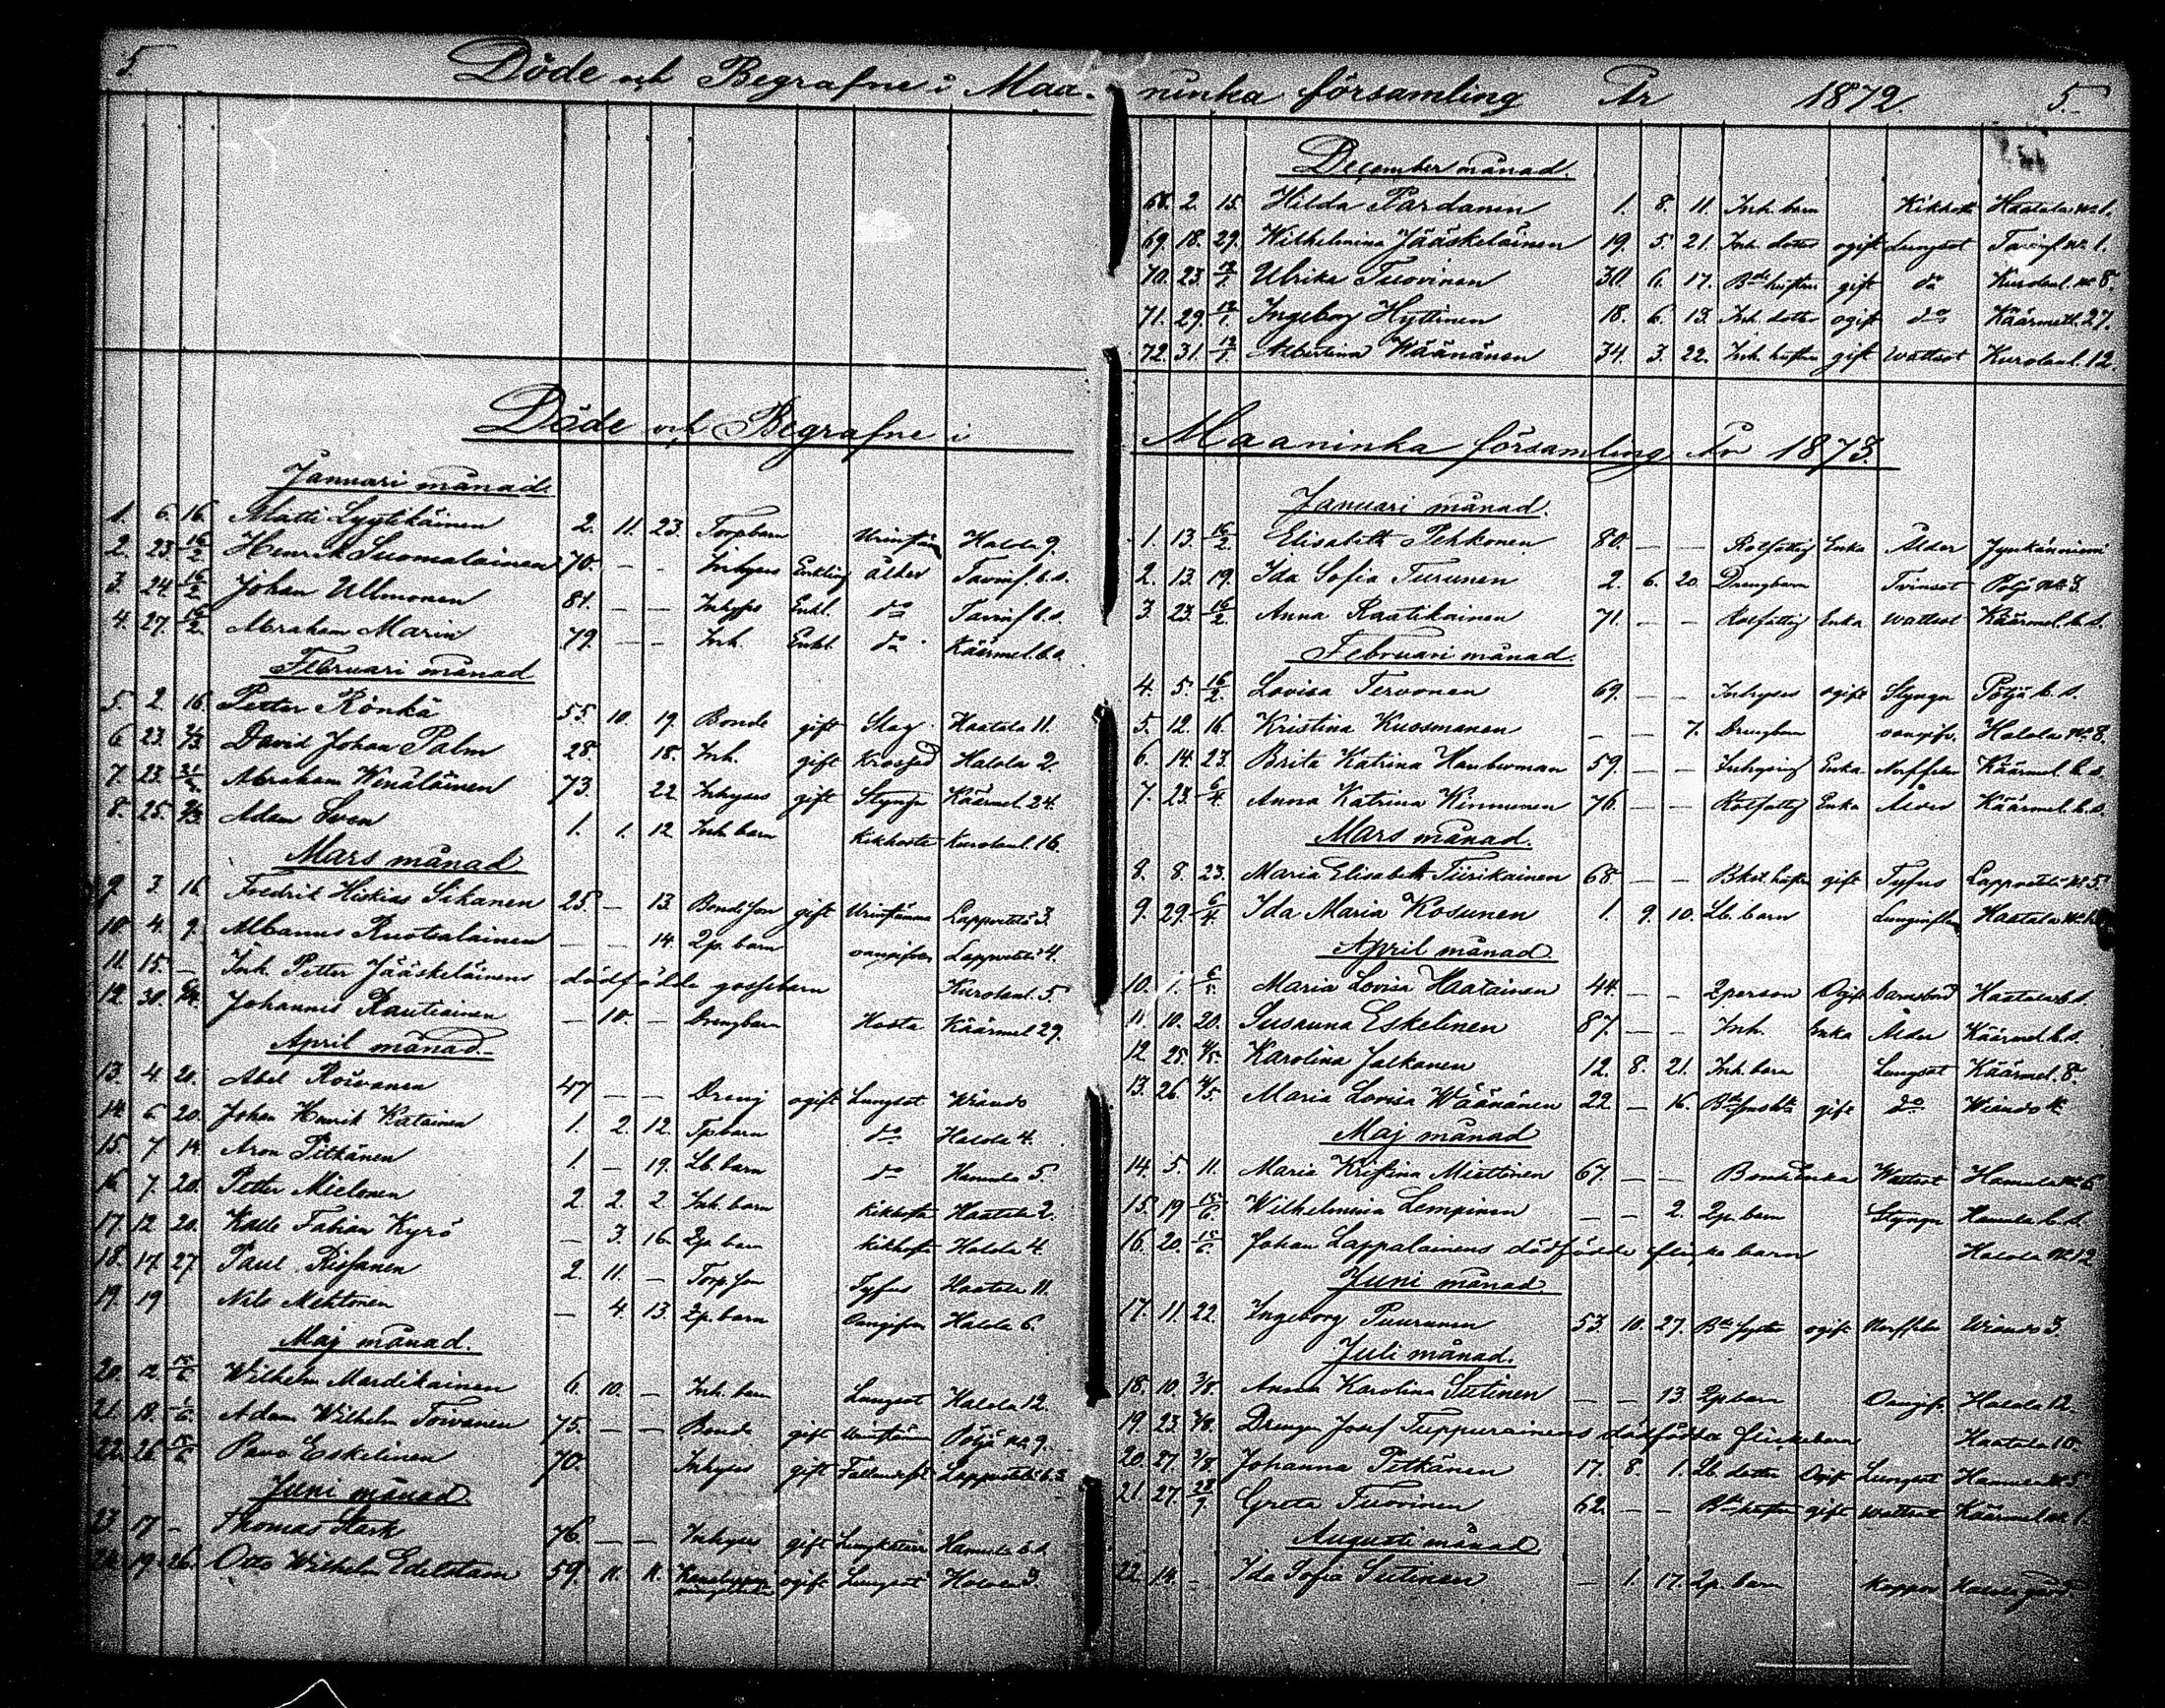 5. Döde och Begrafne i Maaninka församling År 1872. 5.
December månad.
68. 2. 15. Hilda Pardanen 1. 8. 11. Inh. barn Kikhosta Haatala No 1.
69. 18. 29. Wilhelmina Jääskeläinen 19. 5. 21. Inh. dotter ogift Lungsot Tavinf. No 1.
70. 23. 12/1. Ulrika Tuovinen 30. 6. 17. Bde hustru gift do Kurolanl. No 8.
71. 29. 12/1. Ingeborg Hyttinen 18. 6. 13. Inh. dotter ogift do Käärmetl. 27.
72. 31. 12/1. Albertina Wäänänen 34. 3. 22. Inh. hustru gift Wattsot Kurolanl. 12.
Döde och Begrafne i
Januari månad.
1. 6. 16. Matti Lyytikäinen 2. 11. 23. Torpbarn Halola 9.
2. 23. 16/2 Henrik Suomalainen 70. - - Inhyses Enkling ålder Tavinf. b.s.
3. 24. 16/2 Johan Ullmonen 81. — — Inhyses Enkl. do Tavinf. b.s.
4. 27. 16/2. Abraham Marin 79. — — Inh. Enkl. do Käärmel. b.s.
Februari månad
5. 2. 16. Petter Rönkä 55. 10. 19. Bonde gift Slag Haatala 11.
6. 23. 2/3. David Johan Palm 28. 18. Inh. gift Halola 2.
7. 23. Abraham Wenäläinen 73. 22. Inhyses gift Styngn Käärmel. 24.
8. 25. 2/3. Adam Sven 1. 1. 12. Inh. barn Kikhosta Kurolanl. 16.
Mars månad
9. 3. 16. Fredrik Hiskias Sikanen 25. — 13. Bonde son gift Urinstämma Lappvetelä 3.
10. 4. 9. Albanus Ruotsalainen — — 14. 2p. barn Lappvetelä 4.
11. 15. — Inh. Petter Jääskeläinens dödfödde gossebarn Kurolanl. 5.
12. 30. Johannes Rautiainen — 10. — Drengbarn Hosta Käärmel 29.
April månad.
13. 4. 20. Abel Roivanen 47 — — Dreng ogift Lungsot Wiando
14. 6. 20. Johan Henrik Katainen 1. 2. 12. Tpbarn do Halola 4.
15. 7. 14. Aron Pitkänen 1. — 19. Lb. barn do Hamula 5.
16. 7. 20. Petter Mielonen 2. 2. 2. Inh. barn Kikhosta Haatala 2.
17. 12. 20. Kalle Fabian Kyrö — 3. 16. 2p. barn Kikhosta Halola 4.
18. 17. 27. Paul Rissanen 2. 11. — Torp. son Tyfus Haatala 11.
19. 19 Nils Mehtonen — 4. 13. 2p. barn Halola 6.
Maj månad.
20. 12. 15/6 Wilhelm Mardikainen 6. 10. — Inh. barn Lungsot Halola 12.
21. 18. Adam Wilhelm Toivanen 75. — — Bonde gift Urinstämma Pöljä No 9.
22. 26. 15/6. Pavo Eskelinen 70. Inhyses gift Lappvetelä b.s.
Juni månad.
23. 17 - Thomas Stark 76. — — Inhyses gift Lungkatarr Hamula b.s.
24. 19. 26. Otto Wilhelm Edelstam 59. 11. 11. ogift Lungsot Halola 3.
Maaninka församling År 1873.
Januari månad.
1. 13. 16/2. Elisabeth Pehkonen 80. — — Rotfattig Enka Ålder Jynkänniemi
2. 13. 19. Ida Sofia Turunen 2. 6. 20. Drengbarn Tvinsot Pöljä No 3.
3. 23. 16/2. Anna Raatikainen 71. — — Rotfattig Enka Wattsot Käärmel. b.s.
Februari månad.
4. 5. 16/2. Lovisa Tervonen 69. — — Inhyses ogift Styngn Pöljä b.s.
5. 12. 16. Kristina Kuosmanen — — 7. Drengbarn oangifv. Halola No 8.
6. 14. 23. Brita Katrina Hauberman 59. — — Inhysing Enka Nerffeber Käärmel. b.s.
7. 23. 6/4. Anna Katrina Kinnunen 76. — — Rotfattig Enka Ålder Käärmel. b.s.
Mars månad.
8. 8. 23. Maria Elisabeth Tiirikainen 68. — — Bkst. hustru gift Tyfus Lappvetelä No 5.
9. 29. 6/4. Ida Maria Kosunen 1. 9. 10. Lb. barn Lunginflam Haatala
April månad.
10. 1. Maria Lovisa Haatainen 44. — — 2person Ogift Barnsbörd Haatala b.s.
11. 10. 20. Susanna Eskelinen 87. — — Inh. Enka Ålder Käärmel. b.s.
12. 25. 4/5. Karolina Jalkanen 12. 8. 21. Inh. barn Lungsot Käärmel. 8.
13. 26. 4/5. Maria Lovisa Wäänänen 22. — 16. gift do Wiando
Maj månad
14. 5. 11. Maria Kristina Miettinen 67. — — Bonde Enka Wattsot Hamula No 6
15. 19. 15/6. Wilhelmina Lempinen — — 2. 2p. barn Styngn Hamula b.s.
16. 20. 15/6. Johan Lappalainens dödfödde flicke barn Halola No 12
Juni månad.
17. 11. 22. Ingeborg Puurunen 53. 10. 27. Bde syster ogift Nerffeber Wiando 3.
Juli månad.
18. 10. 3/8. Anna Karolina Sutinen — — 13. 2p barn Oangif. Halola 12.
19. 23. 3/8. Drengen Josef Tuppurainens dödfödda flickebarn Haatala 10.
20. 27. 3/8. Johanna Pitkänen 17. 8. 1. Lb. dotter Ogift Lungsot Hamula No 5.
21. 27. 28/9 Greta Tuovinen 62. — — Bde hustru gift Wattsot Käärmel No 1.
Augusti månad.
22. 14. - Ida Sofia Sutinen — 1. 17. 2p. barn Koppor Halola gård.